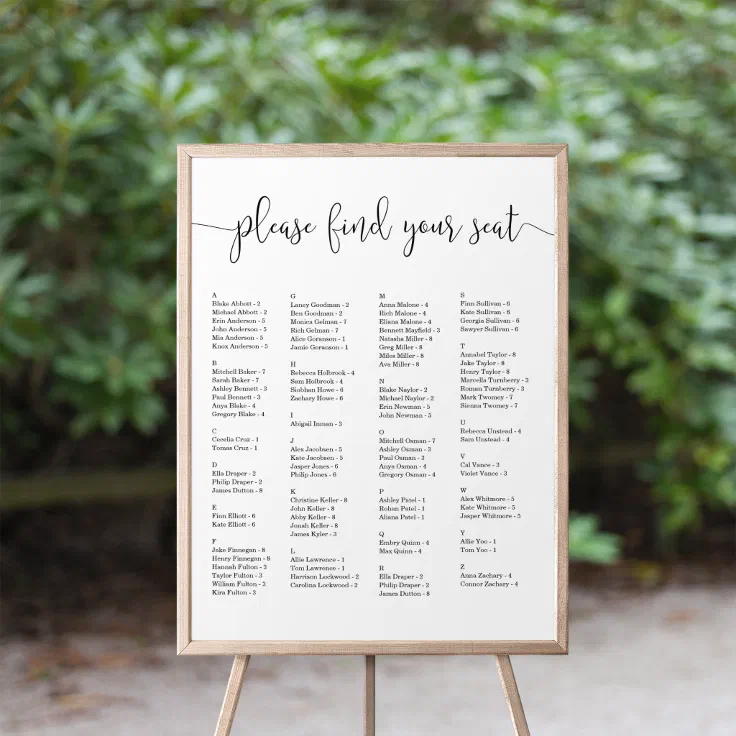 please find your seat
A
Blake Abbott - 2
Michael Abbott - 2
Erin Anderson - 5
John Anderson - 5
Mia Anderson - 5
Knox Anderson - 5
B
Mitchell Baker - 7
Sarah Baker - 7
Ashley Bennett - 3
Paul Bennett - 3
Anya Blake - 4
Gregory Blake - 4
C
Cecelia Cruz - 1
Tomas Cruz - 1
D
Ella Draper - 2
Philip Draper - 2
James Dutton - 8
E
Fion Elliott - 6
Kate Elliott - 6
F
Jake Finnegan - 8
Henry Finnegan - 8
Hannah Fulton - 3
Taylor Fulton - 3
William Fulton - 3
Kira Fulton - 3
G
Laney Goodman - 2
Ben Goodman - 2
Monica Gelman - 7
Rich Gelman - 7
Alice Goranson - 1
Jamie Goranson - 1
H
Rebecca Holbrook - 4
Sam Holbrook - 4
Siobhan Howe - 6
Zachary Howe - 6
I
Abigail Inman - 3
J
Alex Jacobsen - 5
Kate Jacobsen - 5
Jasper Jones - 6
Philip Jones - 6
K
Christine Keller - 8
John Keller - 8
Abby Keller - 8
Jonah Keller - 8
James Kyler - 3
L
Allie Lawrence - 1
Tom Lawrence - 1
Harrison Lockwood - 2
Carolina Lockwood - 2
M
Anna Malone - 4
Rich Malone - 4
Eliana Malone - 4
Bennett Mayfield - 3
Natasha Miller - 8
Greg Miller - 8
Miles Miller - 8
Ava Miller - 8
N
Blake Naylor - 2
Michael Naylor - 2
Erin Newman - 5
John Newman - 5
O
Mitchell Osman - 7
Ashley Osman - 3
Paul Osman - 3
Anya Osman - 4
Gregory Osman - 4
P
Ashley Patel - 1
Robin Patel - 1
Aliana Patel - 1
Q
Embry Quinn - 4
Max Quinn - 4
R
Ella Draper - 2
Philip Draper - 2
James Dutton - 8
S
Finn Sullivan - 6
Kate Sullivan - 6
Georgia Sullivan - 6
Sawyer Sullivan - 6
T
Annabel Taylor - 8
Jake Taylor - 8
Henry Taylor - 8
Marcella Turnberry - 3
Roman Turnberry - 3
Mark Twomey - 7
Sienna Twomey - 7
U
Rebecca Unstead - 4
Sam Unstead - 4
V
Cal Vance - 3
Violet Vance - 3
W
Alex Whitmore - 5
Kate Whitmore - 5
Jasper Whitmore - 5
Y
Allie Yoo - 1
Tom Yoo - 1
Z
Anna Zachary - 4
Connor Zachary - 4